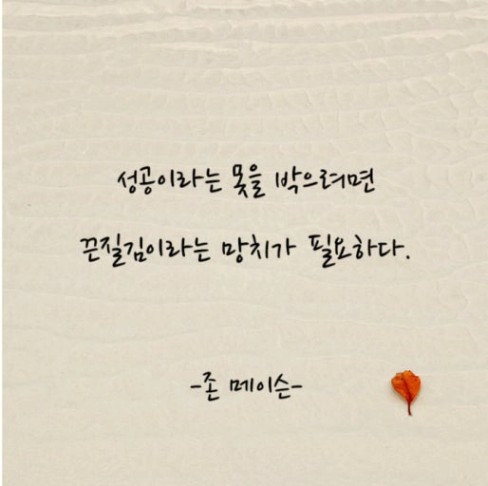 성공이라는 못을 박으려면
끈질김이라는 망치가 필요하다.
-존 메이슨-